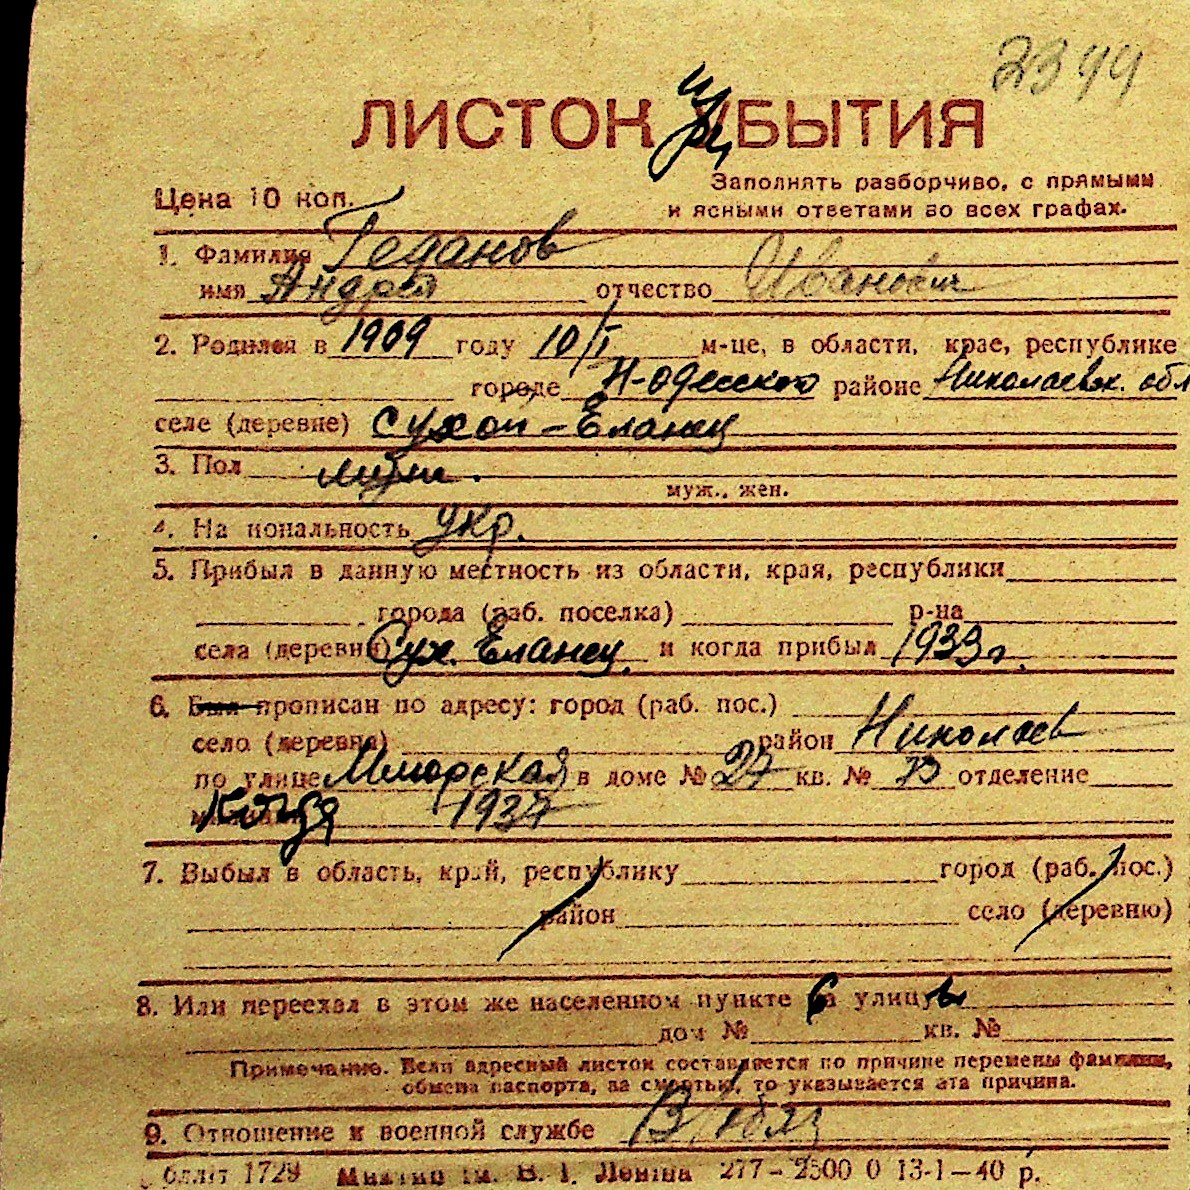 2399
ЛИСТОК ПРИБЫТИЯ
Цена 10 коп.
Заполнять разборчиво, с прямыми
и ясными ответами во всех графах.
1. Фамилия Геданов
имя Андрей отчество Иванович
2. Родился в 1909 году 10/I м-це, в области, крае, республике
городе Н-Одесского районе Николаевск. обл
селе (деревне) Сухой-Еланец
3. Пол муж.
муж., жен.
4. На иональность укр.
5. Прибыл в данную местность из области, края, республики
города (раб. поселка) р-на
села (деревни) Сух. Еланец. и когда прибыл 1933 г.
6. Был прописан по адресу: город (раб. пос.)
село (деревня) район Николаев
по улице в доме № 27 кв. № отделение
Когда 1937
7. Выбыл в область, край, республику город (раб. пос.)
район село (деревню)
8. Или переехал в этом же населенном пункте с улицы
дом № кв. №
Примечание. Если адресный листок составляется по причине перемены фамилии,
обмена паспорта, за смертью, то указывается эта причина.
9. Отношение к военной службе В/обяз
1729 им. В. І. Леніна 277-2500 0 13-1-40 р.